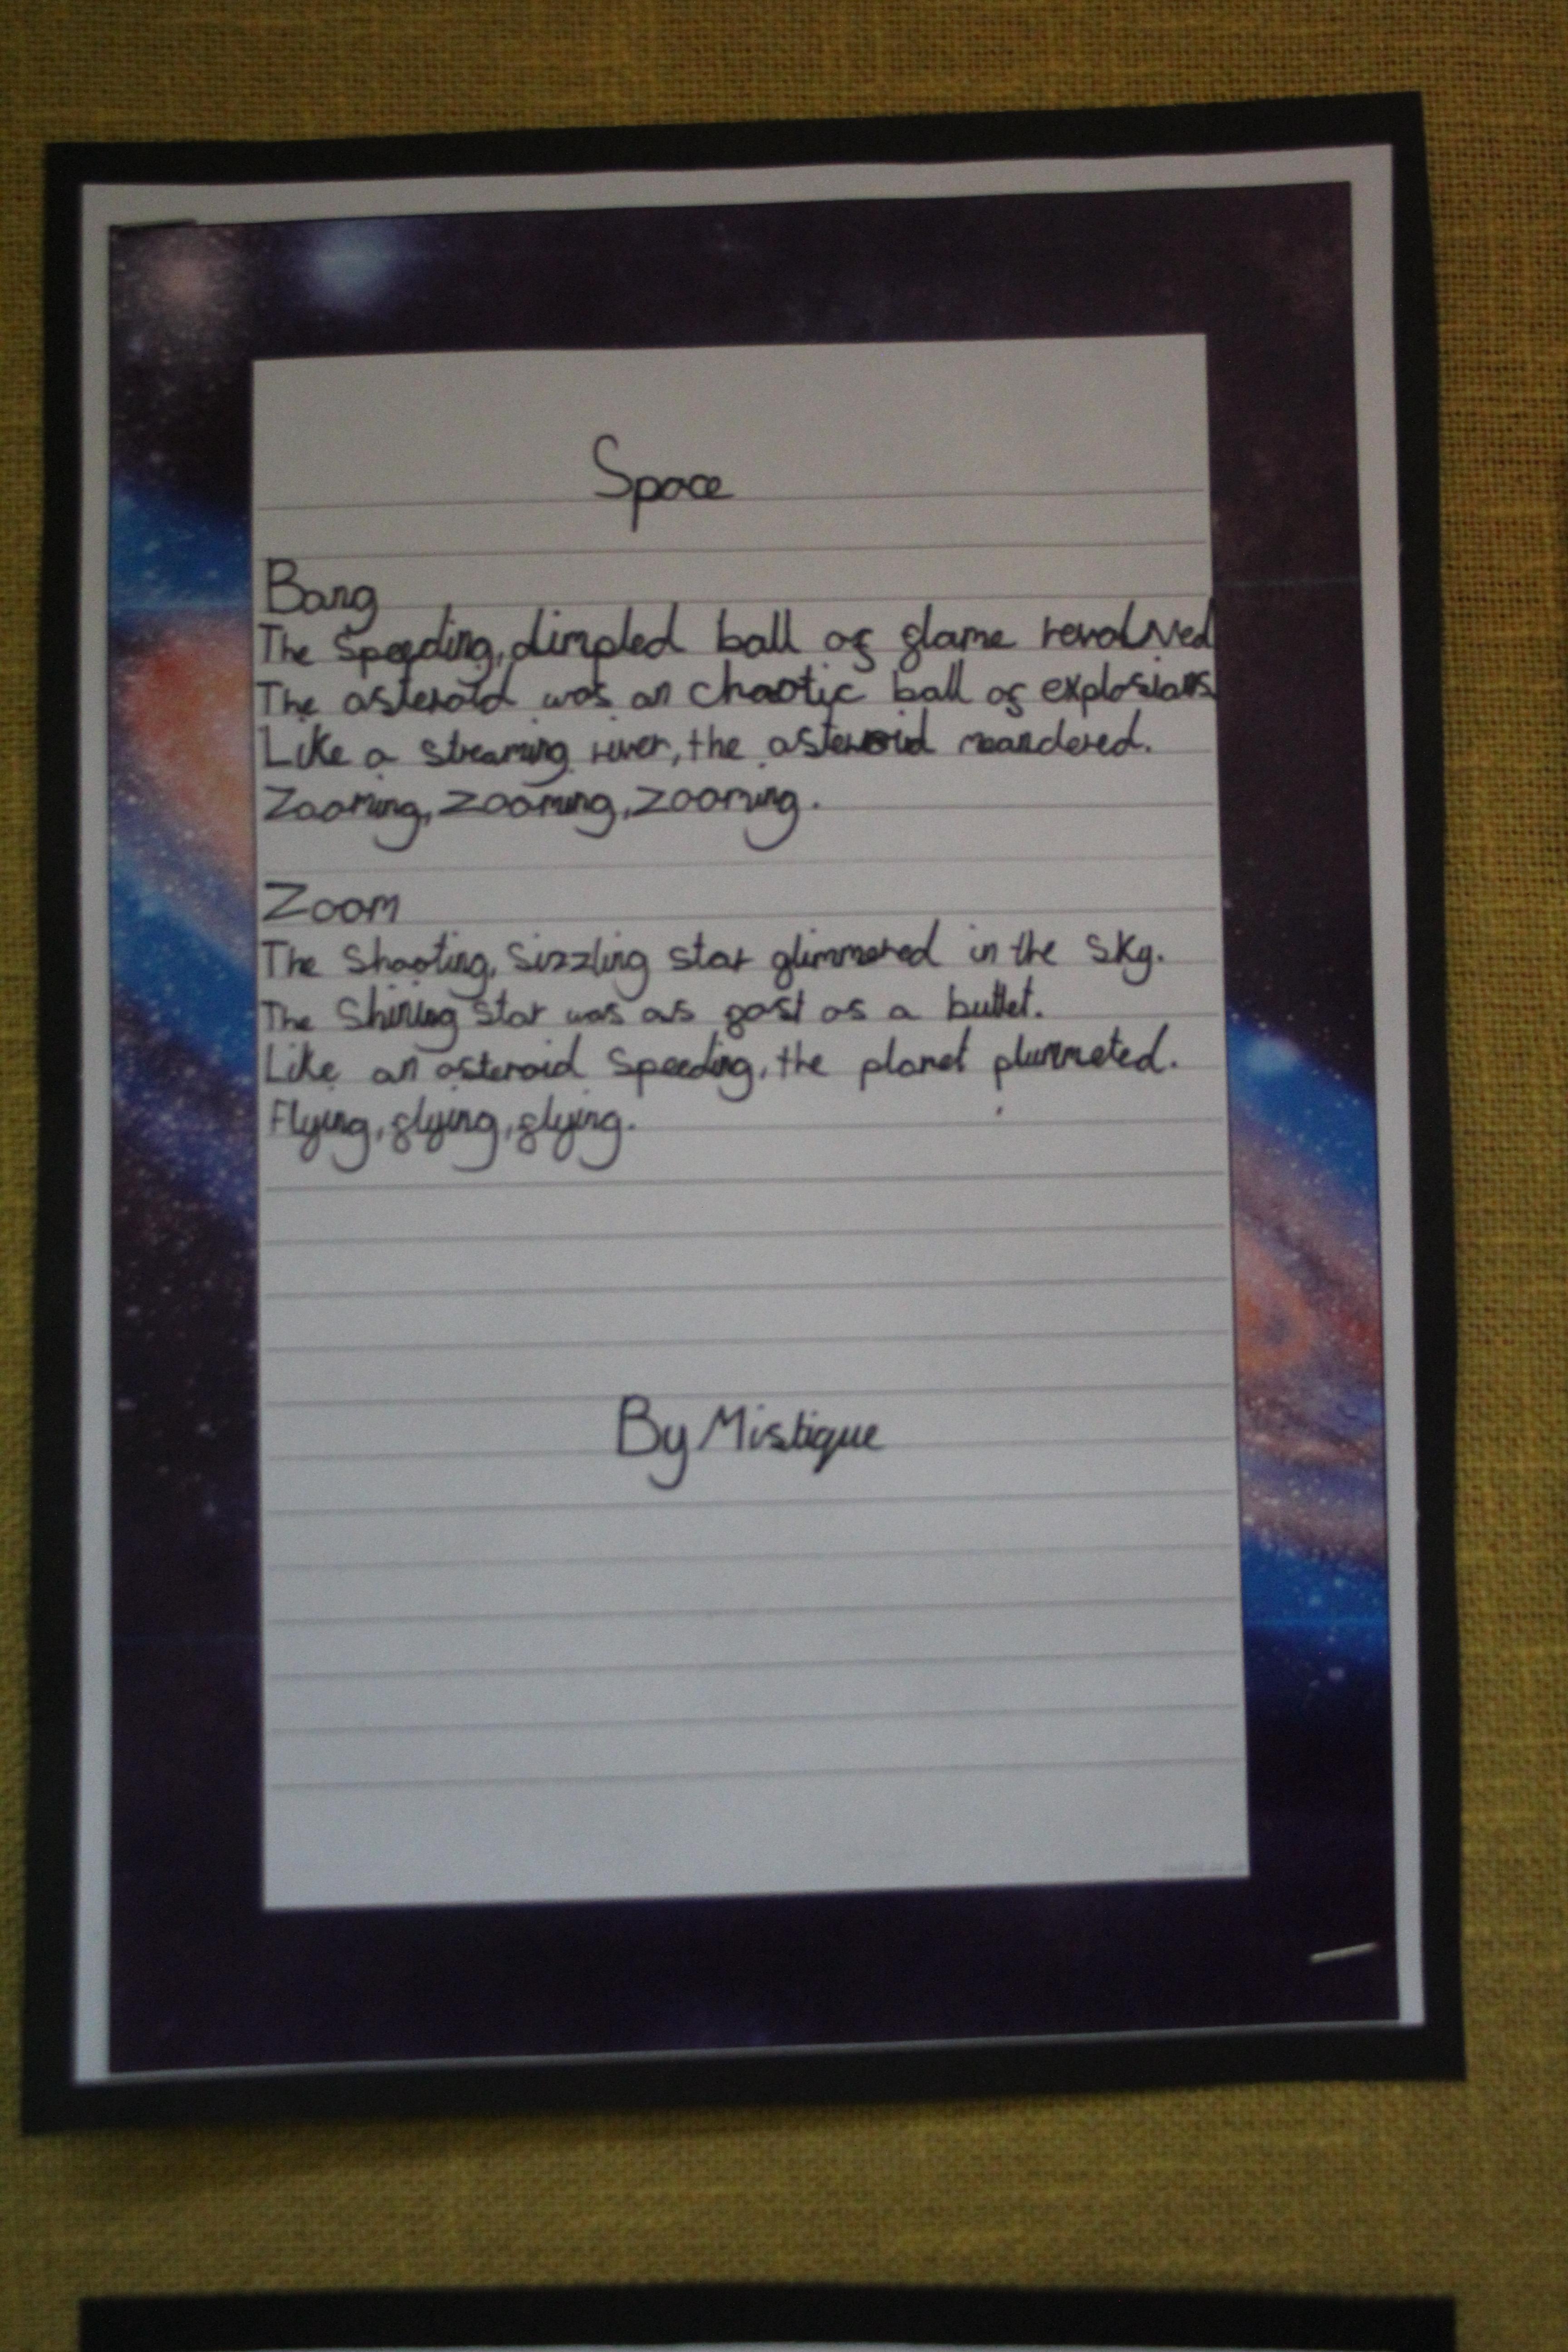 Space
Bang
The Speeding, dimpled ball of flame revolved
The asteroid was an chaotic ball of explosions
Like a streaming river, the asteroid meandered.
Zooming, zooming, zooming.
Zoom
The Shooting, Sizzling star glimmered in the sky.
The Shining star was as fast as a bullet.
Like an asteroid Speeding, the planet plummeted.
Flying, flying, flying.
By Mistique